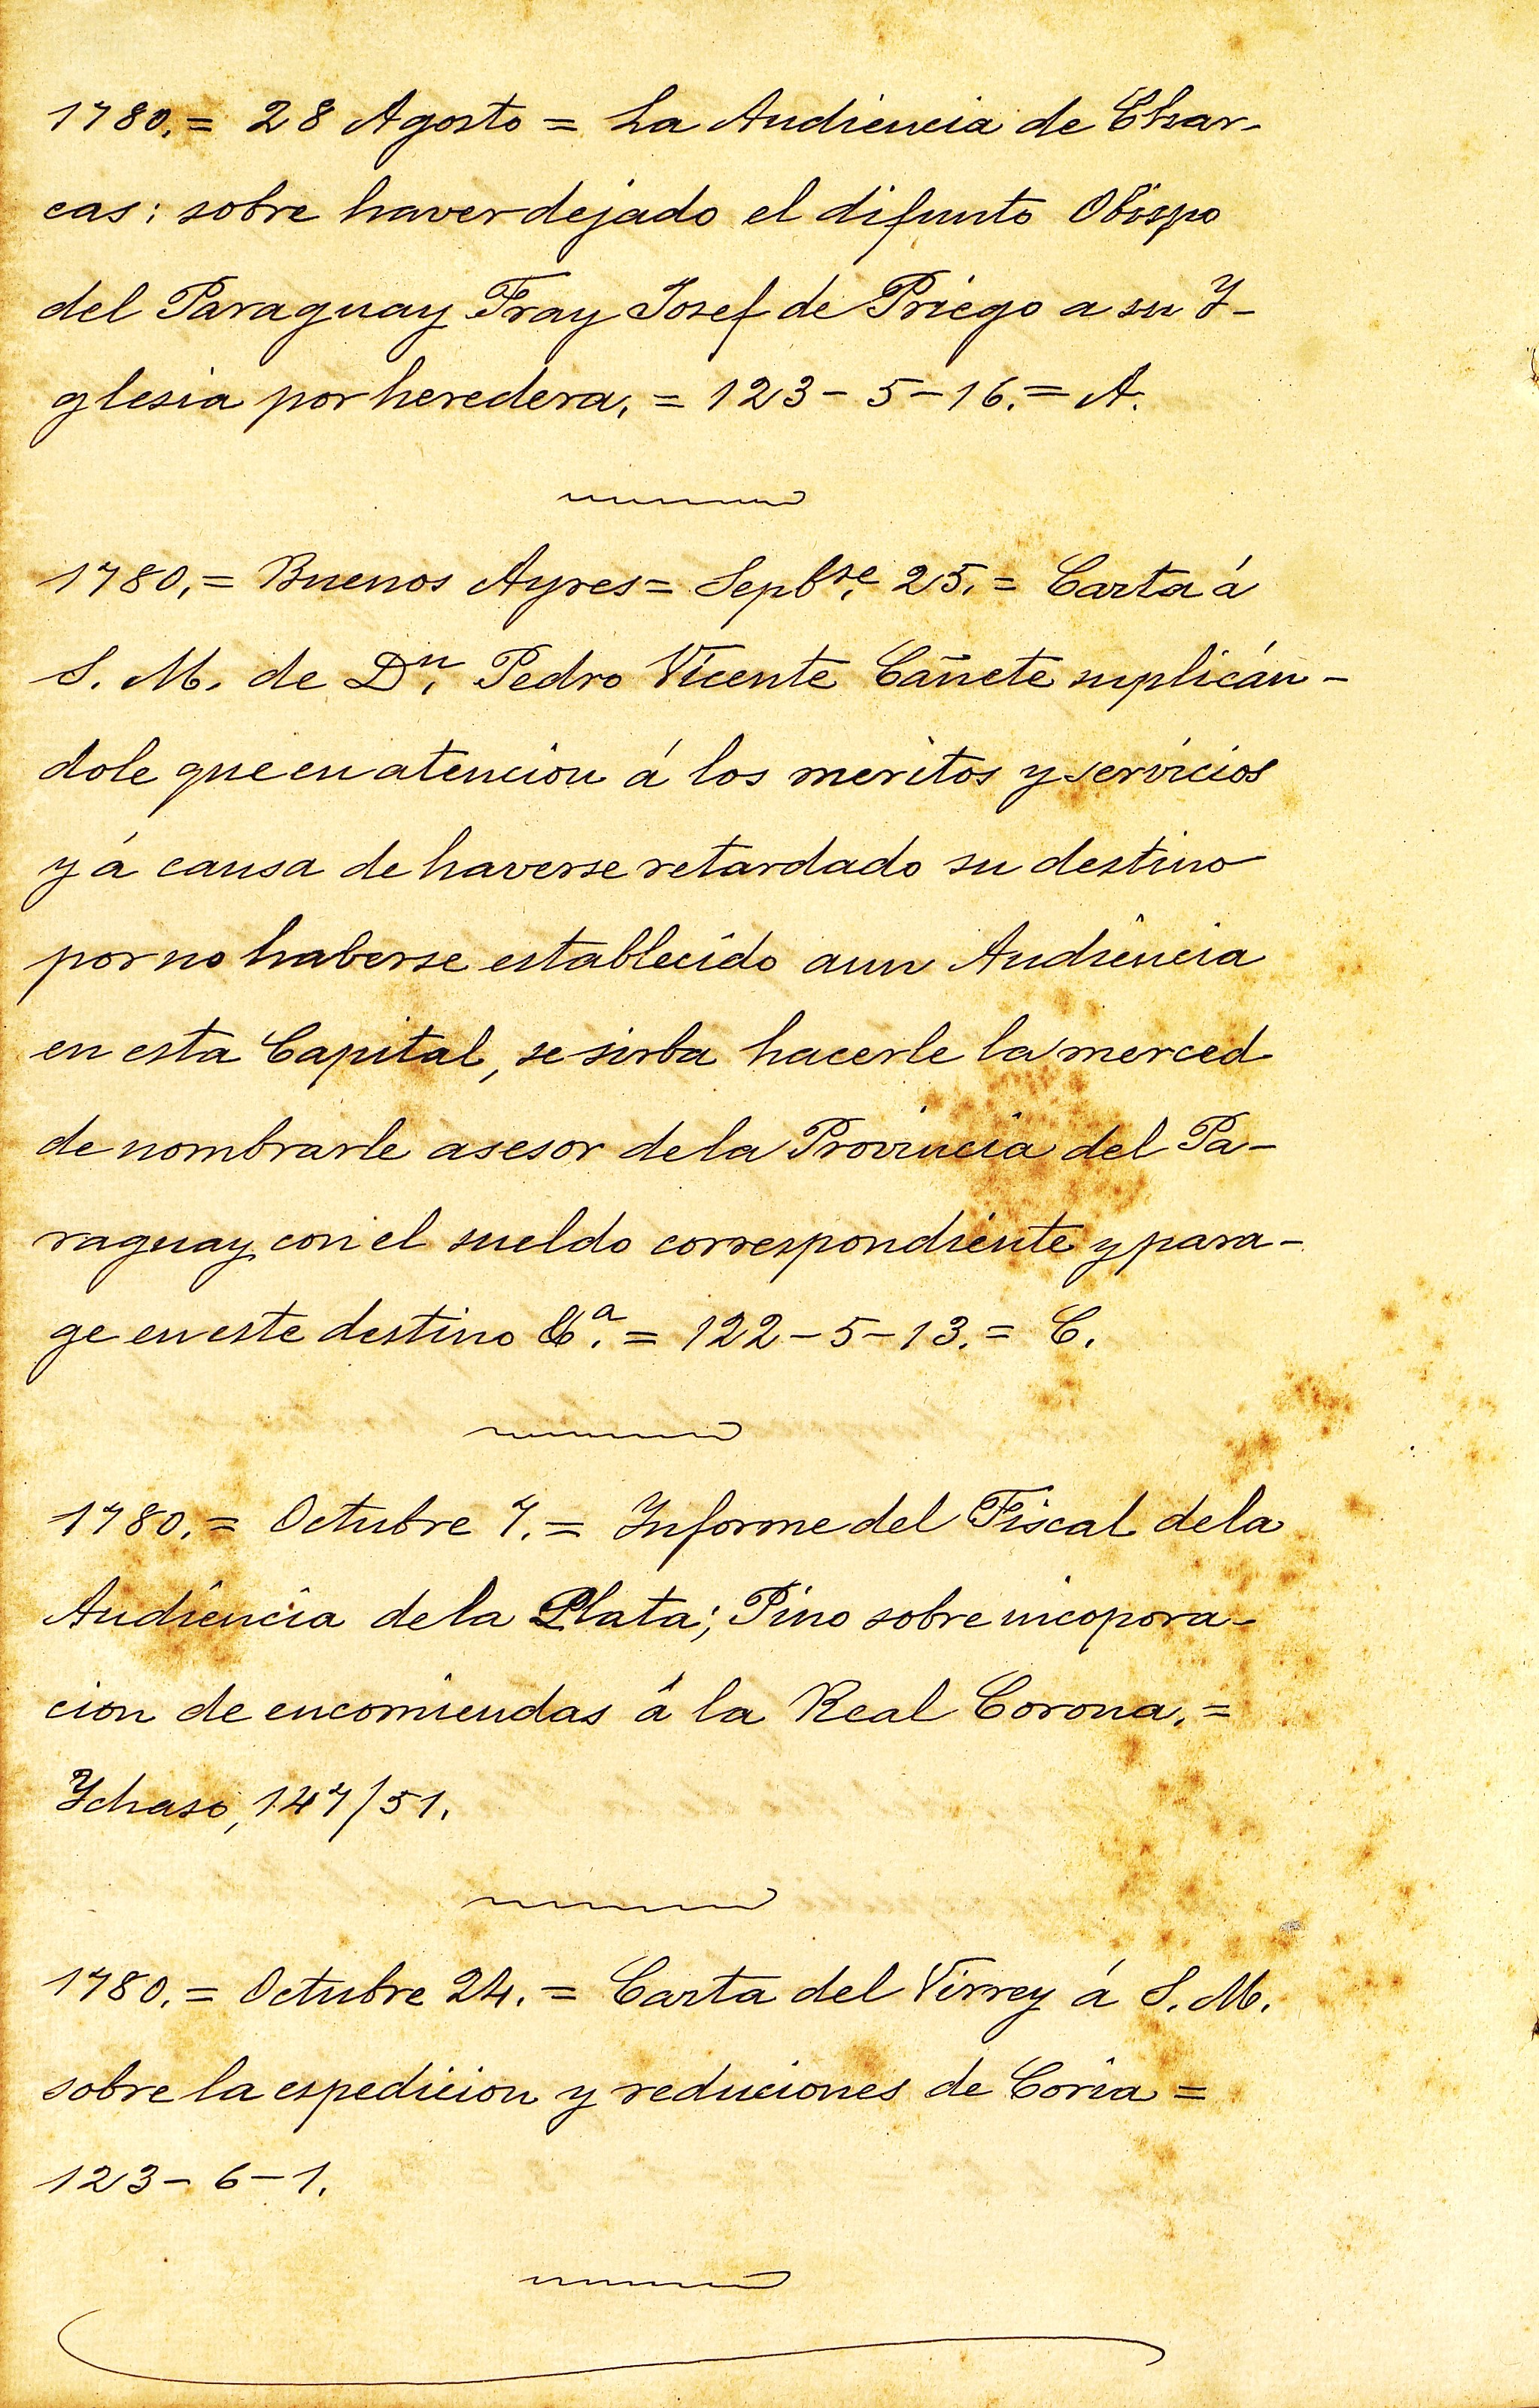 1780.= 28 Agosto = La Audiencia de Char-
cas; sobre haver dejado el difunto Obispo
del Paraguay Fray Josef de Priego a su Y-
glesia por heredera. = 123-5-16.= A.
1780.= Buenos Ayres = Sepbre. 25.= Carta á
S. M. de Dn. Pedro Vicente Cañete suplicán-
dole que en atencion á los meritos y servicios
y á causa de haverse retardado su destino
por no haberse establecido aun Audiencia
en esta Capital, se sirba hacerle la merced
de nombrarle asesor de la Provincia del Pa-
raguay con el sueldo correspondiente y para-
ge en este destino &a. = 122-5-13.= C.
1780.= Octubre 7.= Informe del Fiscal de la
Audiencia de la Plata; Pino sobre incopora-
cion de encomiendas á la Real Corona.=
Ychaso, 147/51.
1780.= Octubre 24.= Carta del Virrey á S. M.
sobre la espedicion y reduciones de Coria =
123-6-1.